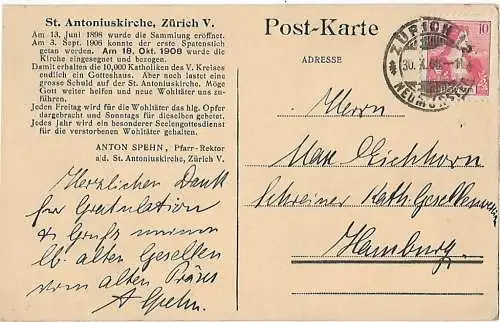 St. Antoniuskirche, Zürich V.
Am 13. Juni 1898 wurde die Sammlung eröffnet.
Am 3. Sept. 1906 konnte der erste Spatenstich
getan werden. Am 18. Okt. 1908 wurde die
Kirche eingesegnet und bezogen.
Damit erhalten die 10,000 Katholiken des V. Kreises
endlich ein Gotteshaus. Aber noch lastet eine
grosse Schuld auf der St. Antoniuskirche. Möge
Gott weiter helfen und neue Wohltäter uns zu-
führen.
Jeden Freitag wird für die Wohltäter das hlg. Opfer
dargebracht und Sonntags für dieselben gebetet.
Jedes Jahr wird ein besonderer Seelengottesdienst
für die verstorbenen Wohltäter gehalten.
ANTON SPEHN, Pfarr-Rektor
a/d. St. Antoniuskirche, Zürich V.
Herzlichen Dank
für Gratulation
& Gruß meines
lb. alten Gesellen
vom alten Präses
A Spehn.
Post-Karte
ADRESSE
10
ZÜRICH 12
30. X.
NEUMÜNSTER
Herrn
Max Eichhorn
Schreiner Kath. Gesellenverein
Hamburg.